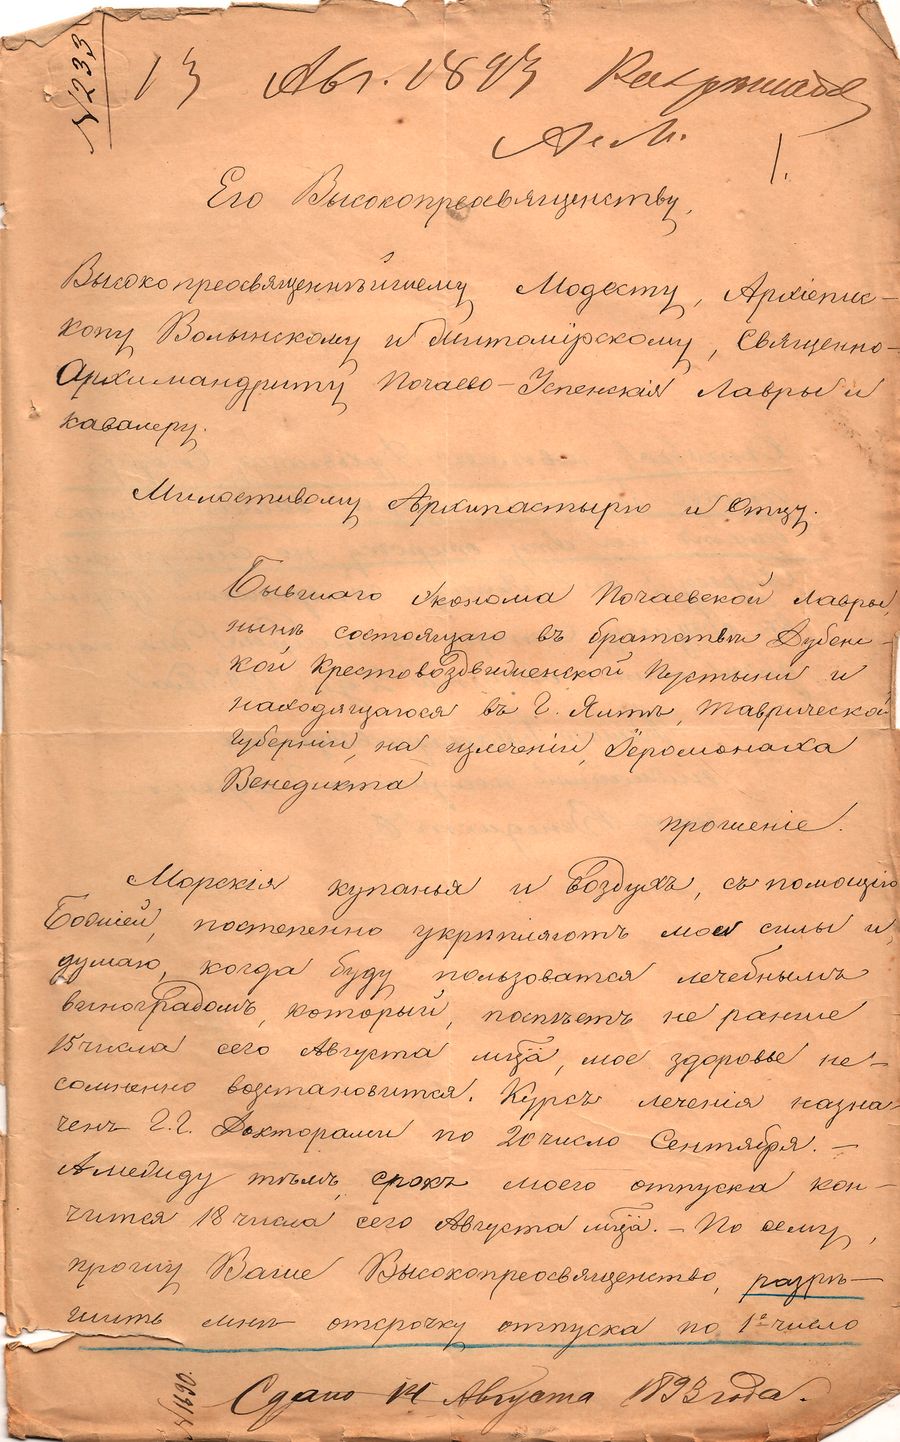 № 233
13 Авг. 1893
А. М.
1.
Его Высокопреосвященству,
Высокопреосвященнѣйшему Модесту, Архіепис-
копу Волынскому и Житомірскому, Священно-
Архимандриту Почаево-Успенскія Лавры и
кавалеру.
Милостивому Архипастырю и Отцу.
Бывшаго Эконома Почаевской Лавры,
нынѣ состоящаго въ братствѣ Дубен-
ской Крестовоздвиженской Пустыни и
находящагося въ Г. Ялтѣ, Таврической
Губерніи, на излеченіи, Іеромонаха
Венедикта
прошеніе.
Морскія купанья и воздухъ, съ помощію
Божіей, постепенно укрѣпляютъ мои силы и,
думаю, когда буду пользоватся лечебнымъ
виноградомъ, который, поспѣетъ не раньше
15 числа сего Августа мца, мое здоровье не-
сомнѣнно возстановится. Курсъ леченія назна-
ченъ Г.Г. Докторами по 20 число Сентября. —
А между тѣмъ, срокъ моего отпуска кон-
чится 18 числа сего Августа мца. — По сему,
прошу Ваше Высокопреосвященство, разрѣ-
шить мнѣ отсрочку отпуска по 1е число
№ 1690. Сдано 14 Августа 1893 года.